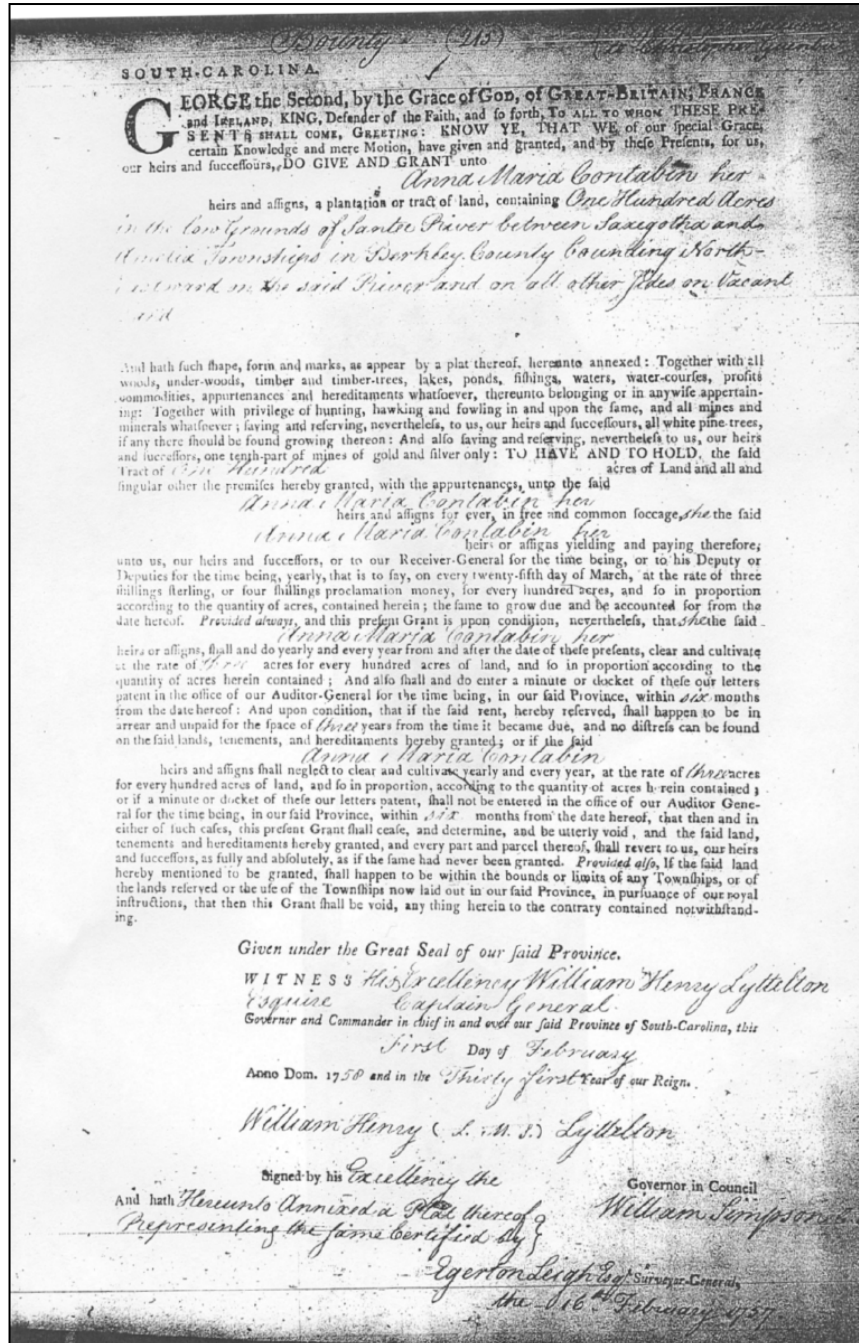 Bounty (215)
SOUTH-CAROLINA.
GEORGE the Second, by the Grace of GOD, of GREAT-BRITAIN, FRANCE
and IRELAND, KING, Defender of the Faith, and so forth, TO ALL TO WHOM THESE PRE-
SENTS SHALL COME, GREETING: KNOW YE, THAT WE of our special Grace,
certain Knowledge and mere Motion, have given and granted, and by these Presents, for us,
our heirs and successours, DO GIVE AND GRANT unto
Anna Maria Contabin her
heirs and assigns, a plantation or tract of land, containing One Hundred Acres
in the low Grounds of Santee River between Saxegotha and
Amelia Townships in Berkley County bounding North-
Eastward on the said River and on all other sides on Vacant
Land
And hath such shape, form and marks, as appear by a plat thereof, hereunto annexed: Together with all
woods, under-woods, timber and timber-trees, lakes, ponds, fishings, waters, water-courses, profits
commodities, appurtenances and hereditaments whatsoever, thereunto belonging or in anywise appertain-
ing: Together with privilege of hunting, hawking and fowling in and upon the same, and all mines and
minerals whatsoever; saving and reserving, nevertheless, to us, our heirs and successours, all white pine-trees,
if any there should be found growing thereon: And also saving and reserving, nevertheless to us, our heirs
and successors, one tenth-part of mines of gold and silver only: TO HAVE AND TO HOLD, the said
Tract of One Hundred acres of Land and all and
singular other the premises hereby granted, with the appurtenances, unto the said
Anna Maria Contabin her
heirs and assigns for ever, in free and common soccage, she the said
Anna Maria Contabin her
heirs or assigns yielding and paying therefore,
unto us, our heirs and successors, or to our Receiver-General for the time being, or to his Deputy or
Deputies for the time being, yearly, that is to say, on every twenty-fifth day of March, at the rate of three
shillings sterling, or four shillings proclamation money, for every hundred acres, and so in proportion
according to the quantity of acres, contained herein; the same to grow due and be accounted for from the
date hereof. Provided always, and this present Grant is upon condition, nevertheless, that she the said
Anna Maria Contabin her
heirs or assigns, shall and do yearly and every year from and after the date of these presents, clear and cultivate
at the rate of three acres for every hundred acres of land, and so in proportion according to the
quantity of acres herein contained; And also shall and do enter a minute or docket of these our letters
patent in the office of our Auditor-General for the time being, in our said Province, within six months
from the date hereof: And upon condition, that if the said rent, hereby reserved, shall happen to be in
arrear and unpaid for the space of three years from the time it became due, and no distress can be found
on the said lands, tenements, and hereditaments hereby granted; or if the said
Anna Maria Contabin
heirs and assigns shall neglect to clear and cultivate yearly and every year, at the rate of three acres
for every hundred acres of land, and so in proportion, according to the quantity of acres herein contained;
or if a minute or docket of these our letters patent, shall not be entered in the office of our Auditor Gene-
ral for the time being, in our said Province, within six months from the date hereof, that then and in
either of such cases, this present Grant shall cease, and determine, and be utterly void, and the said land,
tenements and hereditaments hereby granted, and every part and parcel thereof, shall revert to us, our heirs
and successors, as fully and absolutely, as if the same had never been granted. Provided also, If the said land
hereby mentioned to be granted, shall happen to be within the bounds or limits of any Townships, or of
the lands reserved or the use of the Townships now laid out in our said Province, in pursuance of our royal
instructions, that then this Grant shall be void, any thing herein to the contrary contained notwithstand-
ing.
Given under the Great Seal of our said Province.
WITNESS His Excellency William Henry Lyttelton
Esquire Captain General
Governor and Commander in chief in and over our said Province of South-Carolina, this
First Day of February
Anno Dom. 1758 and in the Thirty first Year of our Reign.
William Henry (L. M. S.) Lyttelton
Signed by his Excellency the Governor in Council
And hath Hereunto Annixed a Plat thereof William Simpson
Representing the same Certified by
Egerton Leigh Esqr. Surveyor-General,
the 16th February 1757